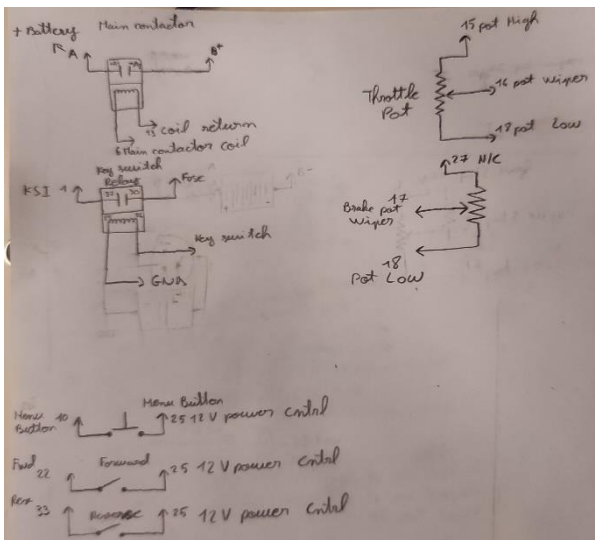 + Battery Main contactor
A
B+
13 coil return
6 Main contactor coil
Key switch
Relay
KSI 1
30
Fuse
Key switch
GND
15 pot High
Throttle
Pot
16 pot wiper
18 pot Low
27 N/C
17
Brake pot
Wiper
18
Pot Low
Menu Button
Menu 10
Button
25 12 V power cntrl
Fwd
22
Forward
25 12 V power cntrl
Rev
33
Reverse
25 12 V power cntrl